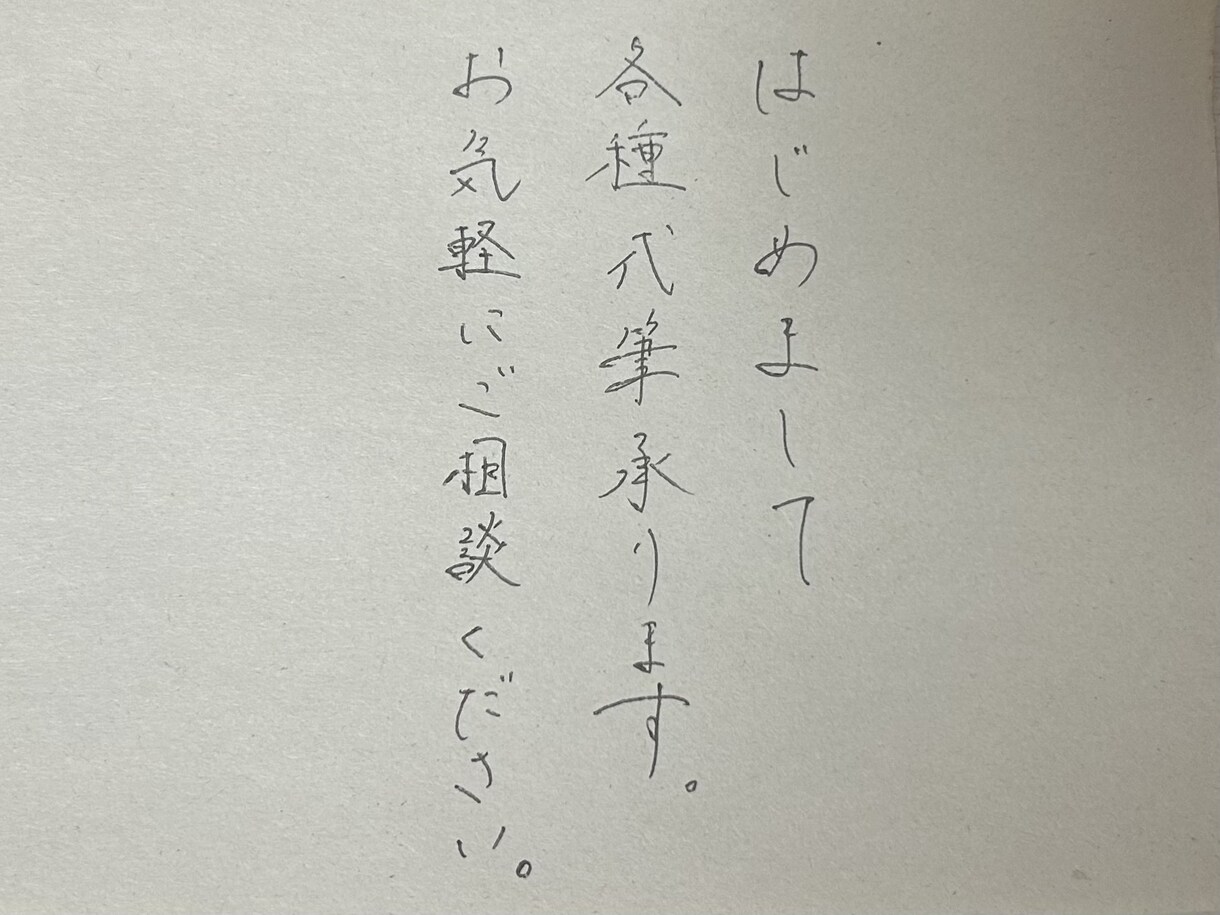 はじめまして
各種代筆承ります。
お気軽にご相談ください。